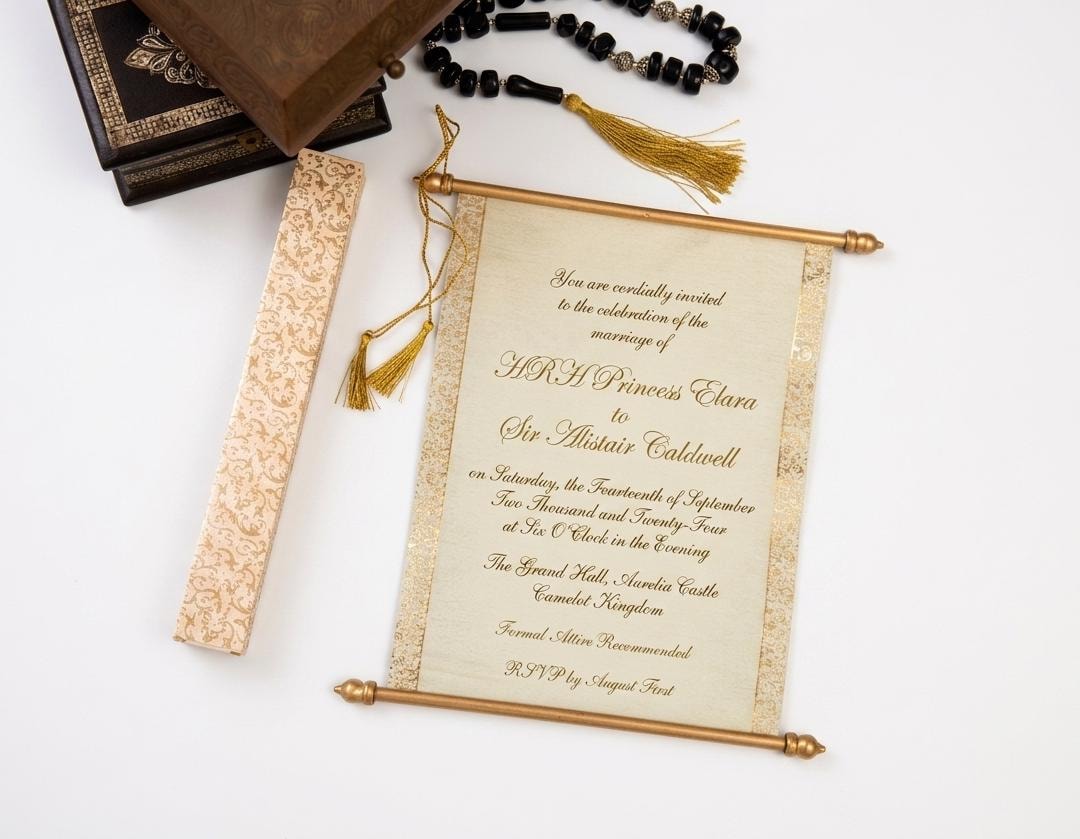 You are cordially invited
to the celebration of the
marriage of
HRH Princess Elara
to
Sir Alistair Caldwell
on Saturday, the Fearteenth of September
Two Thousand and Twenty-Four
at Six O'Clock in the Evening
The Grand Hall, Aurelia Castle
Camelot Kingdom
Formal Attire Recommended
RSVP by August First